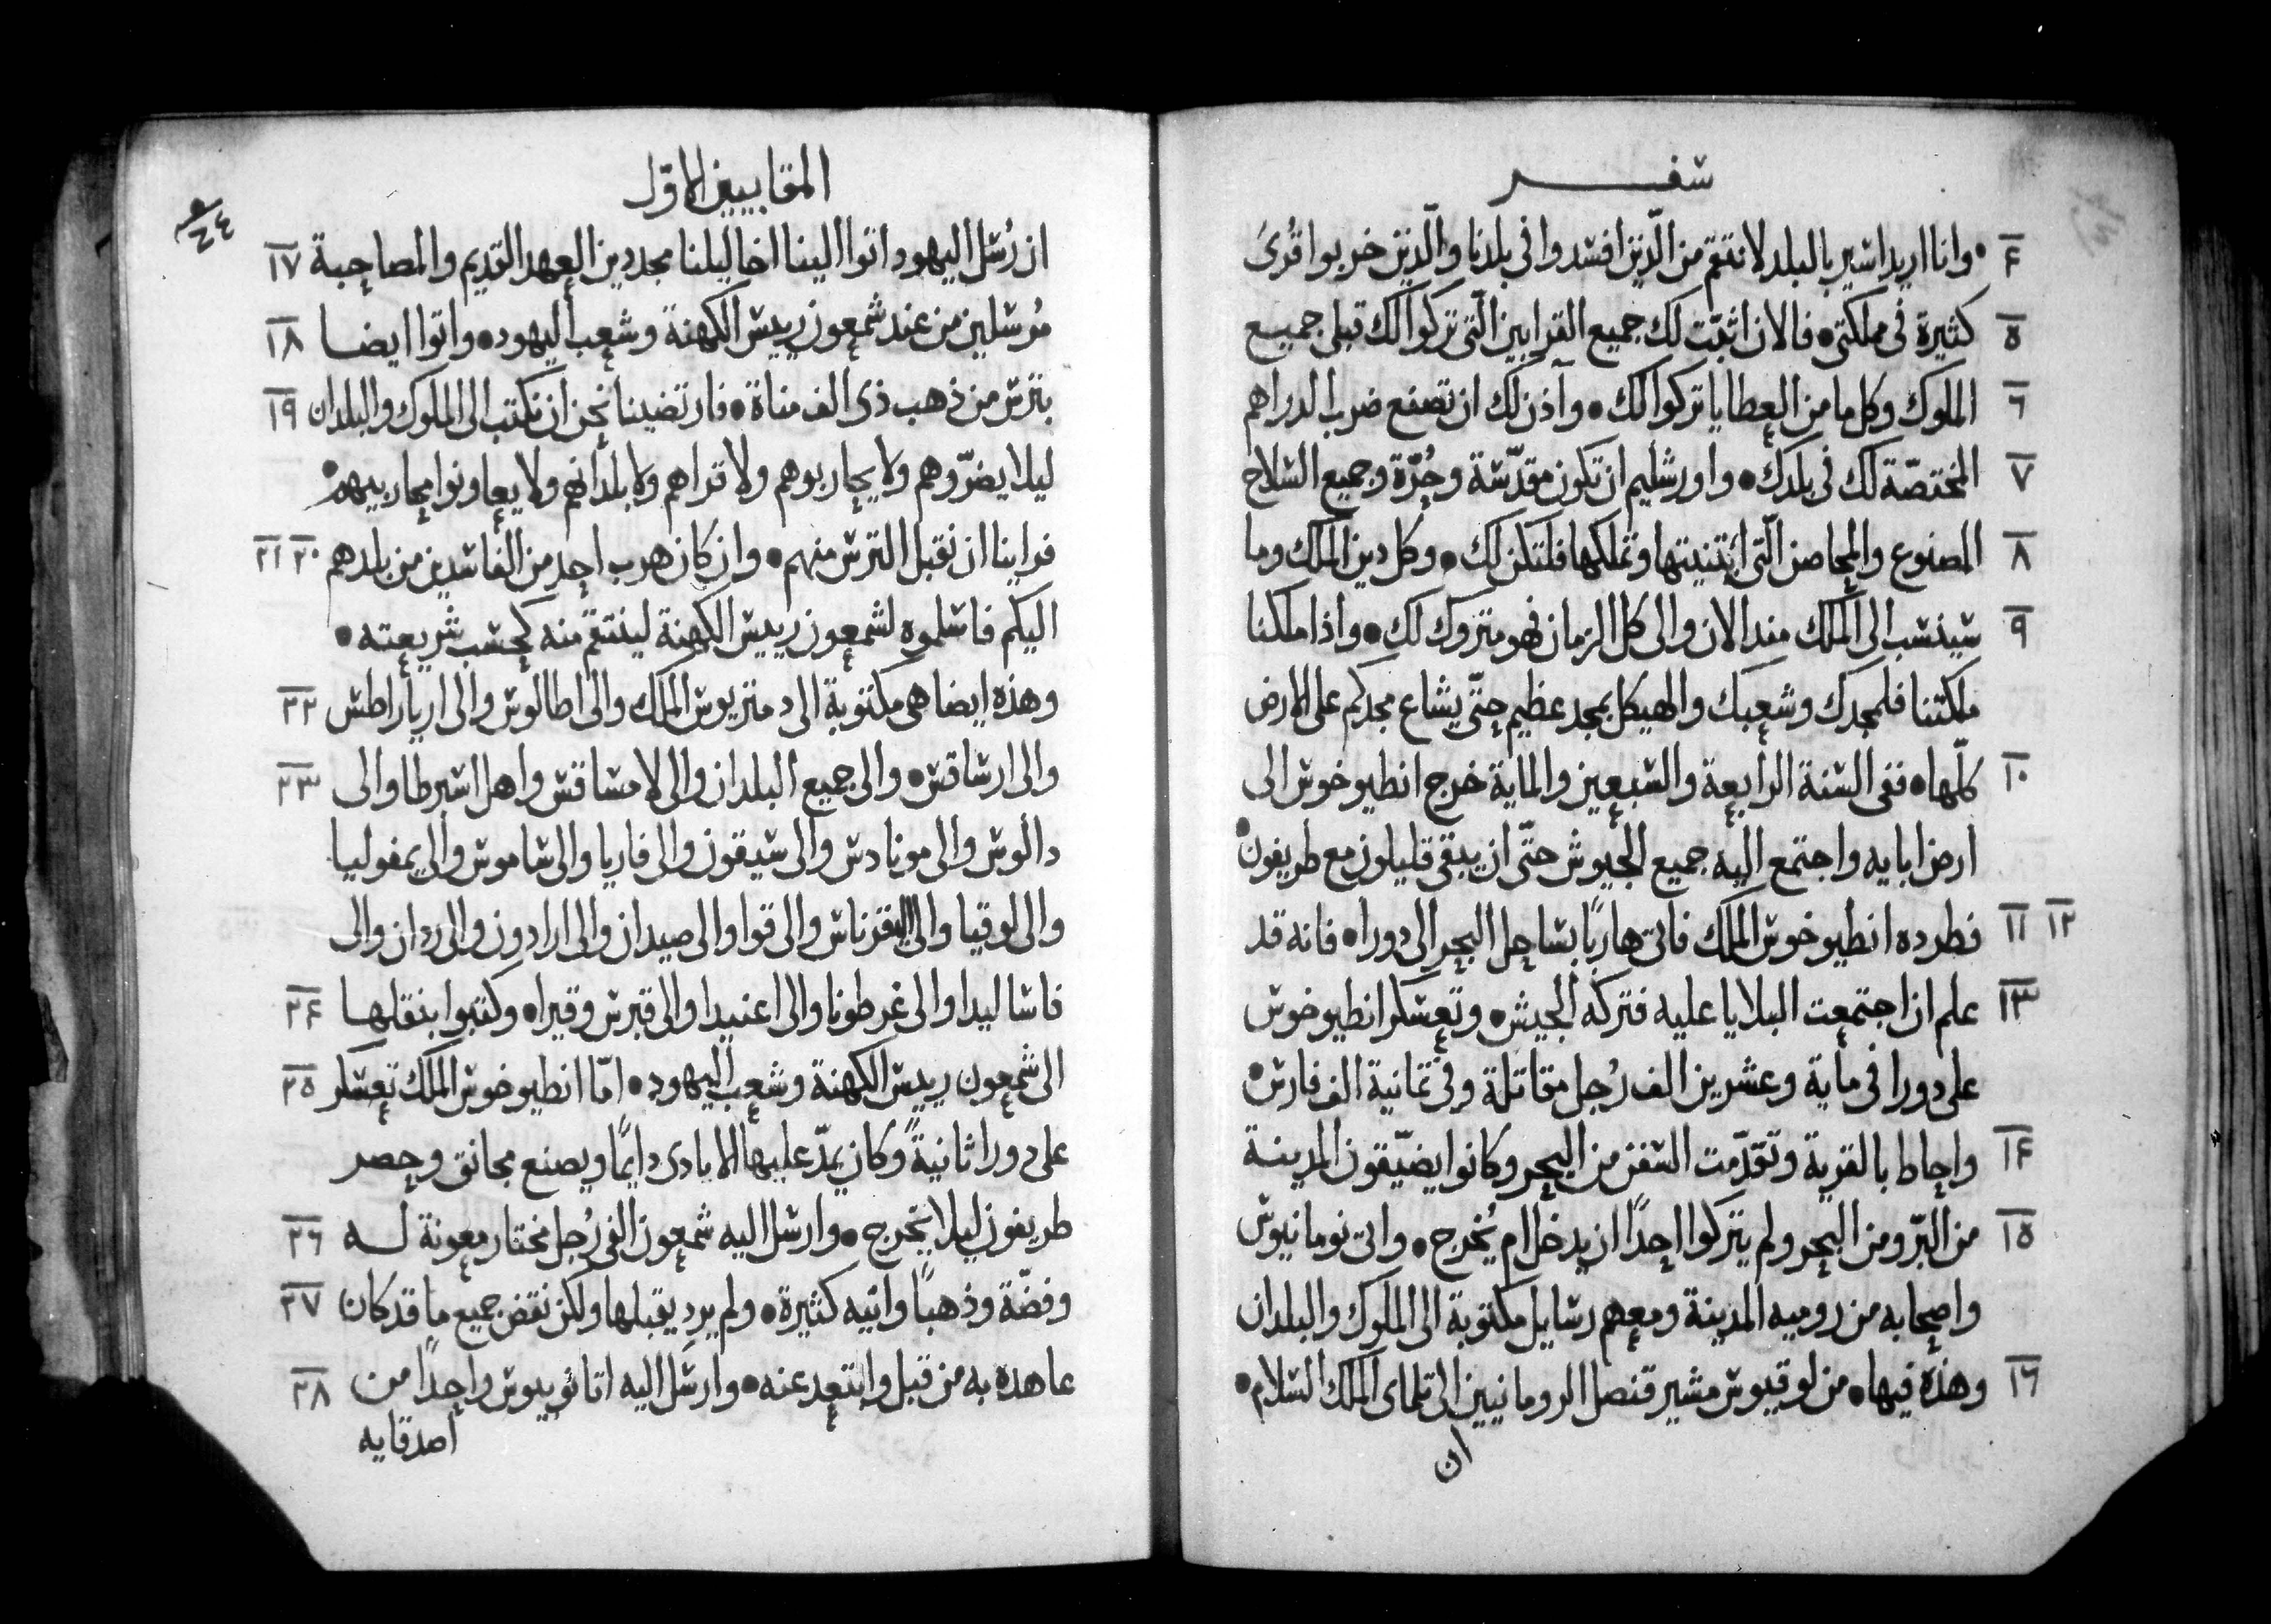 سفر
٤ • وانا اريد اسير بالبلد لانتقم من الّذين افسدوا فى بلدنا والّذين خربوا قرًى
٥ كثيرة فى مملكتى • فالان اثبّت لك جميع القرابين الّتى تركوا لك قبلى جميع
٦ الملوك وكل ما من العطايا تركوا لك • وآذن لك ان تصنع ضرب الدراهم
٧ المختصّة لك فى بلدك • واورشليم ان تكون مقدّسة وحُرّة وجميع السلاح
٨ المصنوع والمحاصن الّتى ابتنيتها وتملكها فلتكن لك • وكل دين الملك وما
٩ سينسب الى الملك مند الان والى كل الزمان فهو متروك لك • واذا ملكنا
ملكتنا فلمجدك وشعبك والهيكل بمجد عظيم حتّى يشاع مجدكم على الارض
١٠ كلّها • ففى السنة الرابعة والسبعين والماية خرج انطيوخوس الى
ارض ابايه واجتمع اليه جميع الجيوش حتّى ان يبقى قليلون مع طريفون •
١١ ١٢ فطرده انطيوخوس الملك فاتى هاربًا بساحل البحر الى دورا • فانه قد
١٣ علم ان اجتمعت البلايا عليه فتركه الجيش • وتعسكر انطيوخوس
على دورا فى ماية وعشرين الف رُجل مقاتلة وفى تمانية الف فارس •
١٤ واحاط بالقرية وتقدّمت السفن من البحر وكانوا يضيّقون المدينة
١٥ من البّر ومن البحر ولم يتركوا احدًا ان يدخل ام يُخرج • واتى نومانيوس
واصحابه من روميه المدينة ومعهم رسايل مكتوبة الى الملوك والبلدان
١٦ وهذه فيها • من لوقيوس مشير قنصل الرومانيين الى تلماى الملك السلام •
ان
المقابيين الاوّل
١٧ ان رُسل اليهود اتوا الينا اخاليلنا مجددين العهد القديم والمصاحبة
١٨ مُرسلين من عند شمعون رييس الكهنة وشعب اليهود • واتوا ايضا
١٩ بترس من ذهب ذى الف مناة • فارتضينا نحن ان نكتب الى الملوك والبلدان
ليلا يضرّوهم ولا يحاربوهم ولا قراهم ولا بلدانهم ولا يعاونوا محاربيهم •
٢٠ ٢١ فراينا ان نقبل الترس منهم • وان كان هرب احد من الفاسدين من بلدهم
اليكم فاسلموه لشمعون رييس الكهنة لينتقم منه كحسب شريعته •
٢٢ وهذه ايضا هى مكتوبة الى دمتريوس الملك والى اطالوس والى اريارا‌طس
٢٣ والى ارساقس • والى جميع البلدان والى لامساقس واهل اسبرطا والى
دالوس والى مونادس والى سيقون والى قاريا والى ساموس والى يمفوليا
والى لوقيا والى اليقرناس والى قوا والى صيدان والى ارادون والى ردان والى
٢٤ فاساليدا والى غرطونا والى اعنيدا والى قبرس وقيرا • وكتبوا بنقلها
٢٥ الى شمعون رييس الكهنة وشعب اليهود • امّا انطيوخوس الملك تعسكر
على دورا ثانيةً وكان يمدّ عليها الايادى دايمًا ويصنع مجانق وحصر
٢٦ طريفون ليلا يخرج • وارسل اليه شمعون الفى رُجل مختار معونة له
٢٧ وفضّة وذهبًا وانيه كثيرة • ولم يرد يقبلها ولكن نقض جميع ما قد كان
٢٨ عاهده به من قبل وابتعد عنه • وارسل اليه اتانوبيوس واحدًا من
اصدقايه